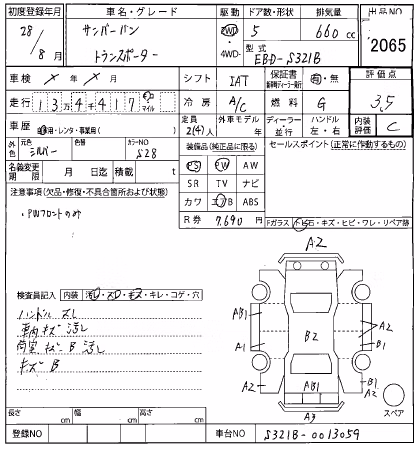 初度登録年月 車名・グレード 駆動 ドア数・形状 排気量 出品NO
28/8月 サンバーバン トランスポーター 2WD・4WD 5 660cc 2065
型式 EBD-S321B
車検 X年 X月 シフト IAT 保証書 有・無 評価点
走行 134417 km マイル 冷房 A/C 燃料 G 3.5
車歴 自家用・レンタ・事業用( ) 定員 2(4)人 外車モデル 年 ディーラー 並行 ハンドル 左・右 内装評価 C
外色 元色 シルバー 色替 カラーNO S28
装備品(純正品に限る) セールスポイント(正常に作動するもの)
名義変更期限 月 日迄 積載 t
PS PW AW
注意事項(欠品・修復・不具合箇所および状態)
SR TV ナビ
・PWフロントのみ
カワ エアB ABS
R券 7,690円
Fガラス トビ石・キズ・ヒビ・ワレ・リペア跡
A2
検査員記入 内装 汚レ・スレ・キズ・キレ・コゲ・穴
ハンドル スレ
車内 キズ 汚レ
荷室 キズ B 汚レ
キズ B
AB1 A2
B2
A1 B1
A2 AB1 B1 A2
A3
スペア
長さ cm 幅 cm 高さ cm
登録NO 車台NO S321B-0013059